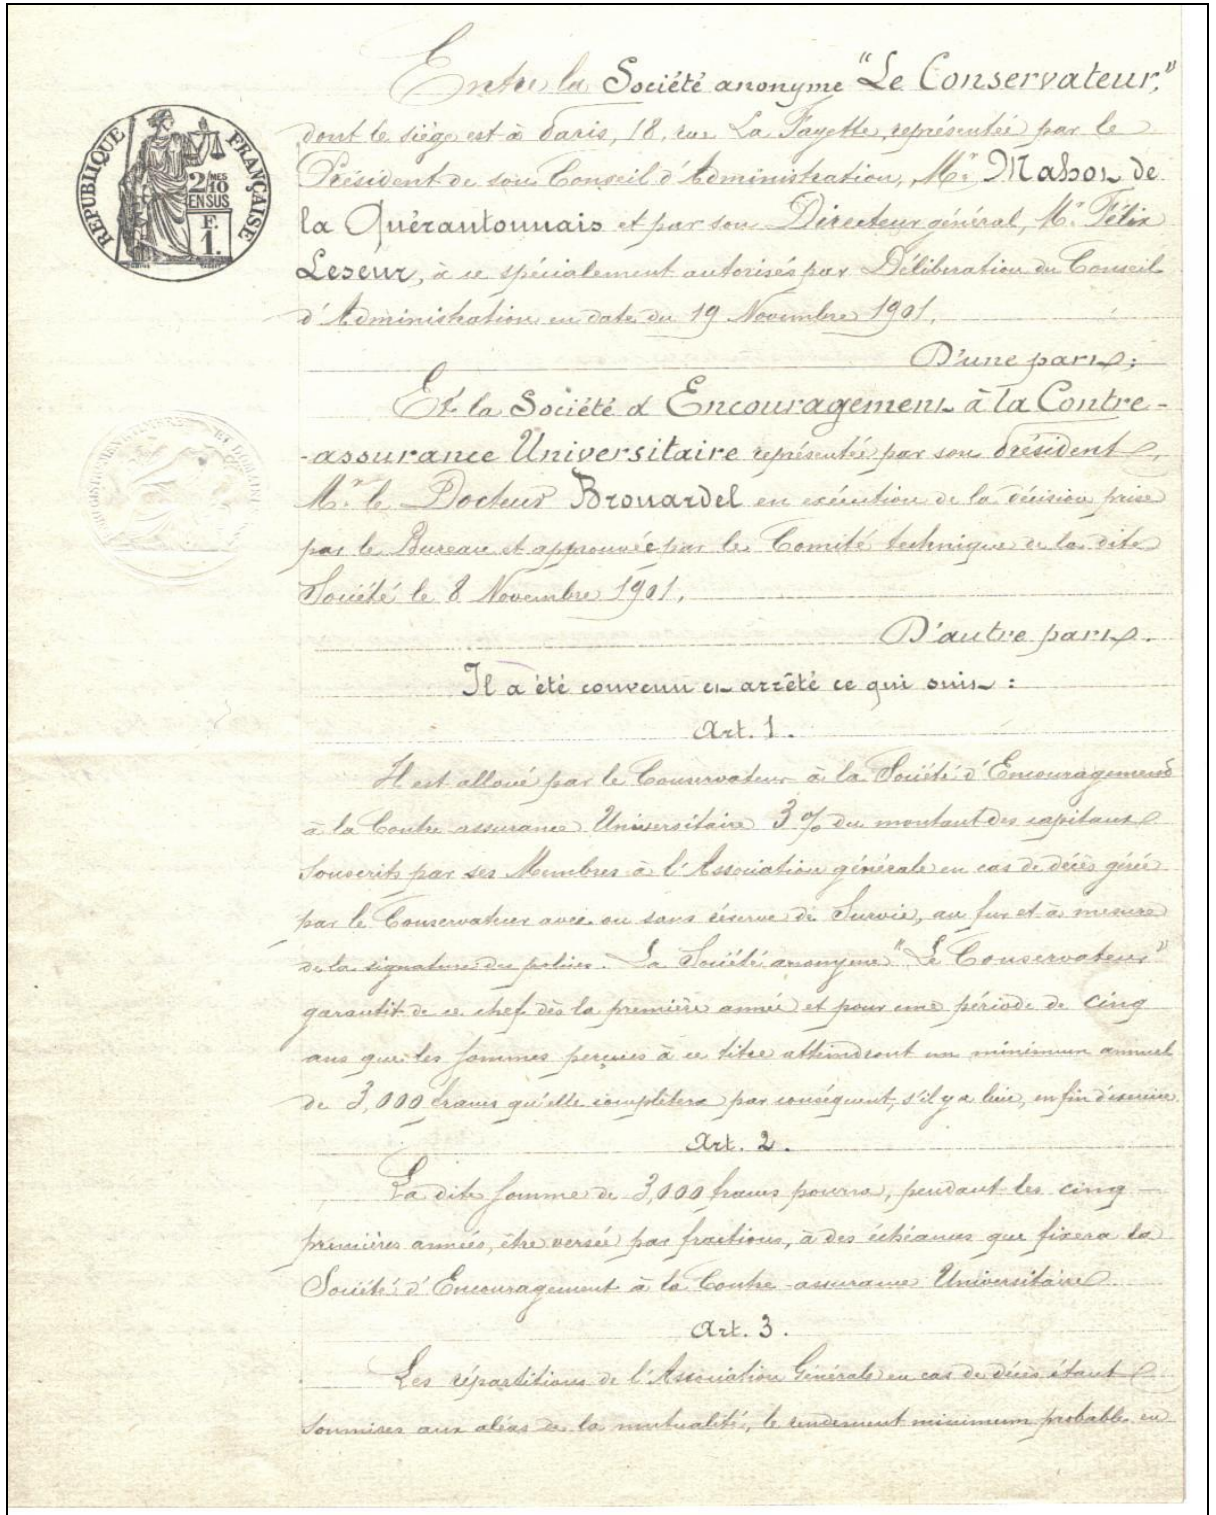 Entre la Société anonyme "Le Conservateur,"
dont le siège est à Paris, 18, rue La Fayette, représentée par le
Président de son Conseil d'Administration, Mr. Mahon de
la Quérantonnais et par son Directeur général, Mr. Félix
Leseur, à ce spécialement autorisés par Délibération du Conseil
d'Administration en date du 19 Novembre 1901,
D'une part;
Et la Société d'Encouragement à la Contre-
-assurance Universitaire représentée par son Président,
Mr. le Docteur Brouardel en exécution de la décision prise
par le Bureau et approuvée par le Comité technique de la dite
Société le 8 Novembre 1901,
D'autre part.
Il a été convenu et arrêté ce qui suit :
Art. 1.
Il est alloué par le Conservateur à la Société d'Encouragement
à la Contre assurance Universitaire 3 % du montant des capitaux
souscrits par ses Membres à l'Association générale en cas de décès gérée
par le Conservateur avec ou sans réserve de Survie, au fur et à mesure
de la signature des polices. La Société anonyme "Le Conservateur"
garantit de ce chef dès la première année et pour une période de cinq
ans que les sommes perçues à ce titre atteindront un minimum annuel
de 3,000 francs qu'elle complètera par conséquent, s'il y a lieu, en fin d'exercice.
Art. 2.
La dite somme de 3,000 francs pourra, pendant les cinq
premières années, être versée par fractions, à des échéances que fixera la
Société d'Encouragement à la Contre-assurance Universitaire
Art. 3.
Les répartitions de l'Association Générale en cas de décès étant
soumises aux aléas de la mutualité, le rendement minimum probable en
RÉPUBLIQUE FRANÇAISE
2/10 MES
EN SUS
F.
1.